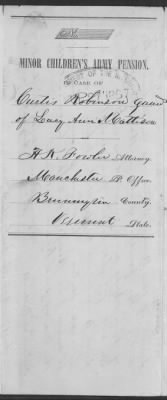 MINOR CHILDREN'S ARMY PENSION.
IN CASE OF
Curtis Robinson Guard
of Lucy Ann Mattison
H. K. Fowler Attorney
Manchester P. Office.
Bennington County.
Vermont State.